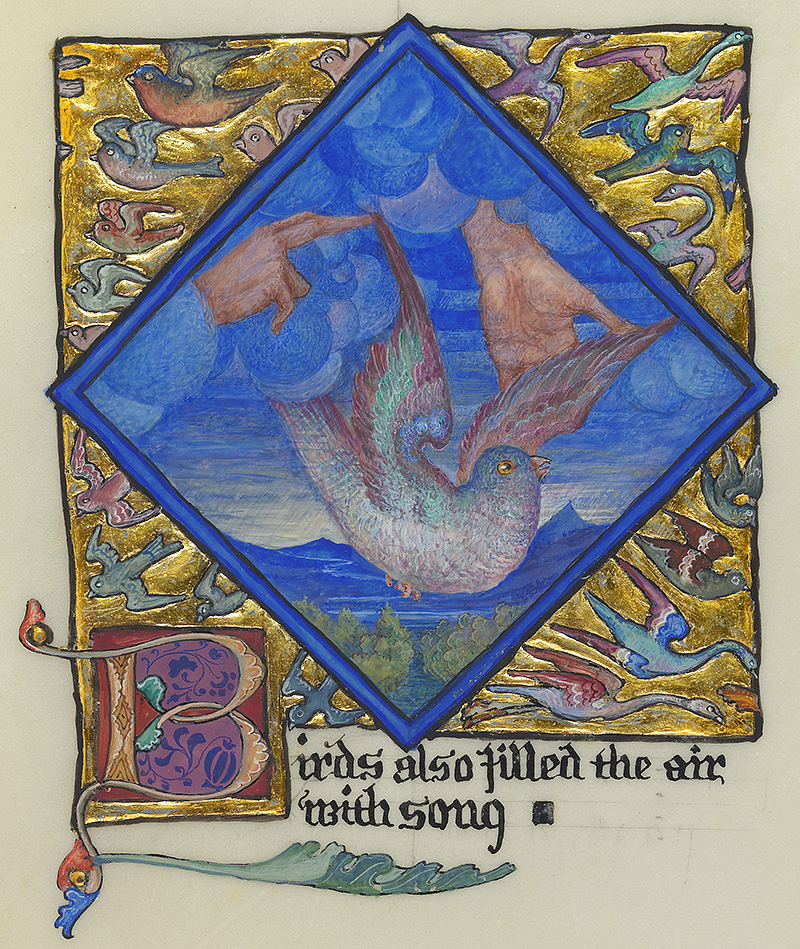 Birds also filled the air
with song